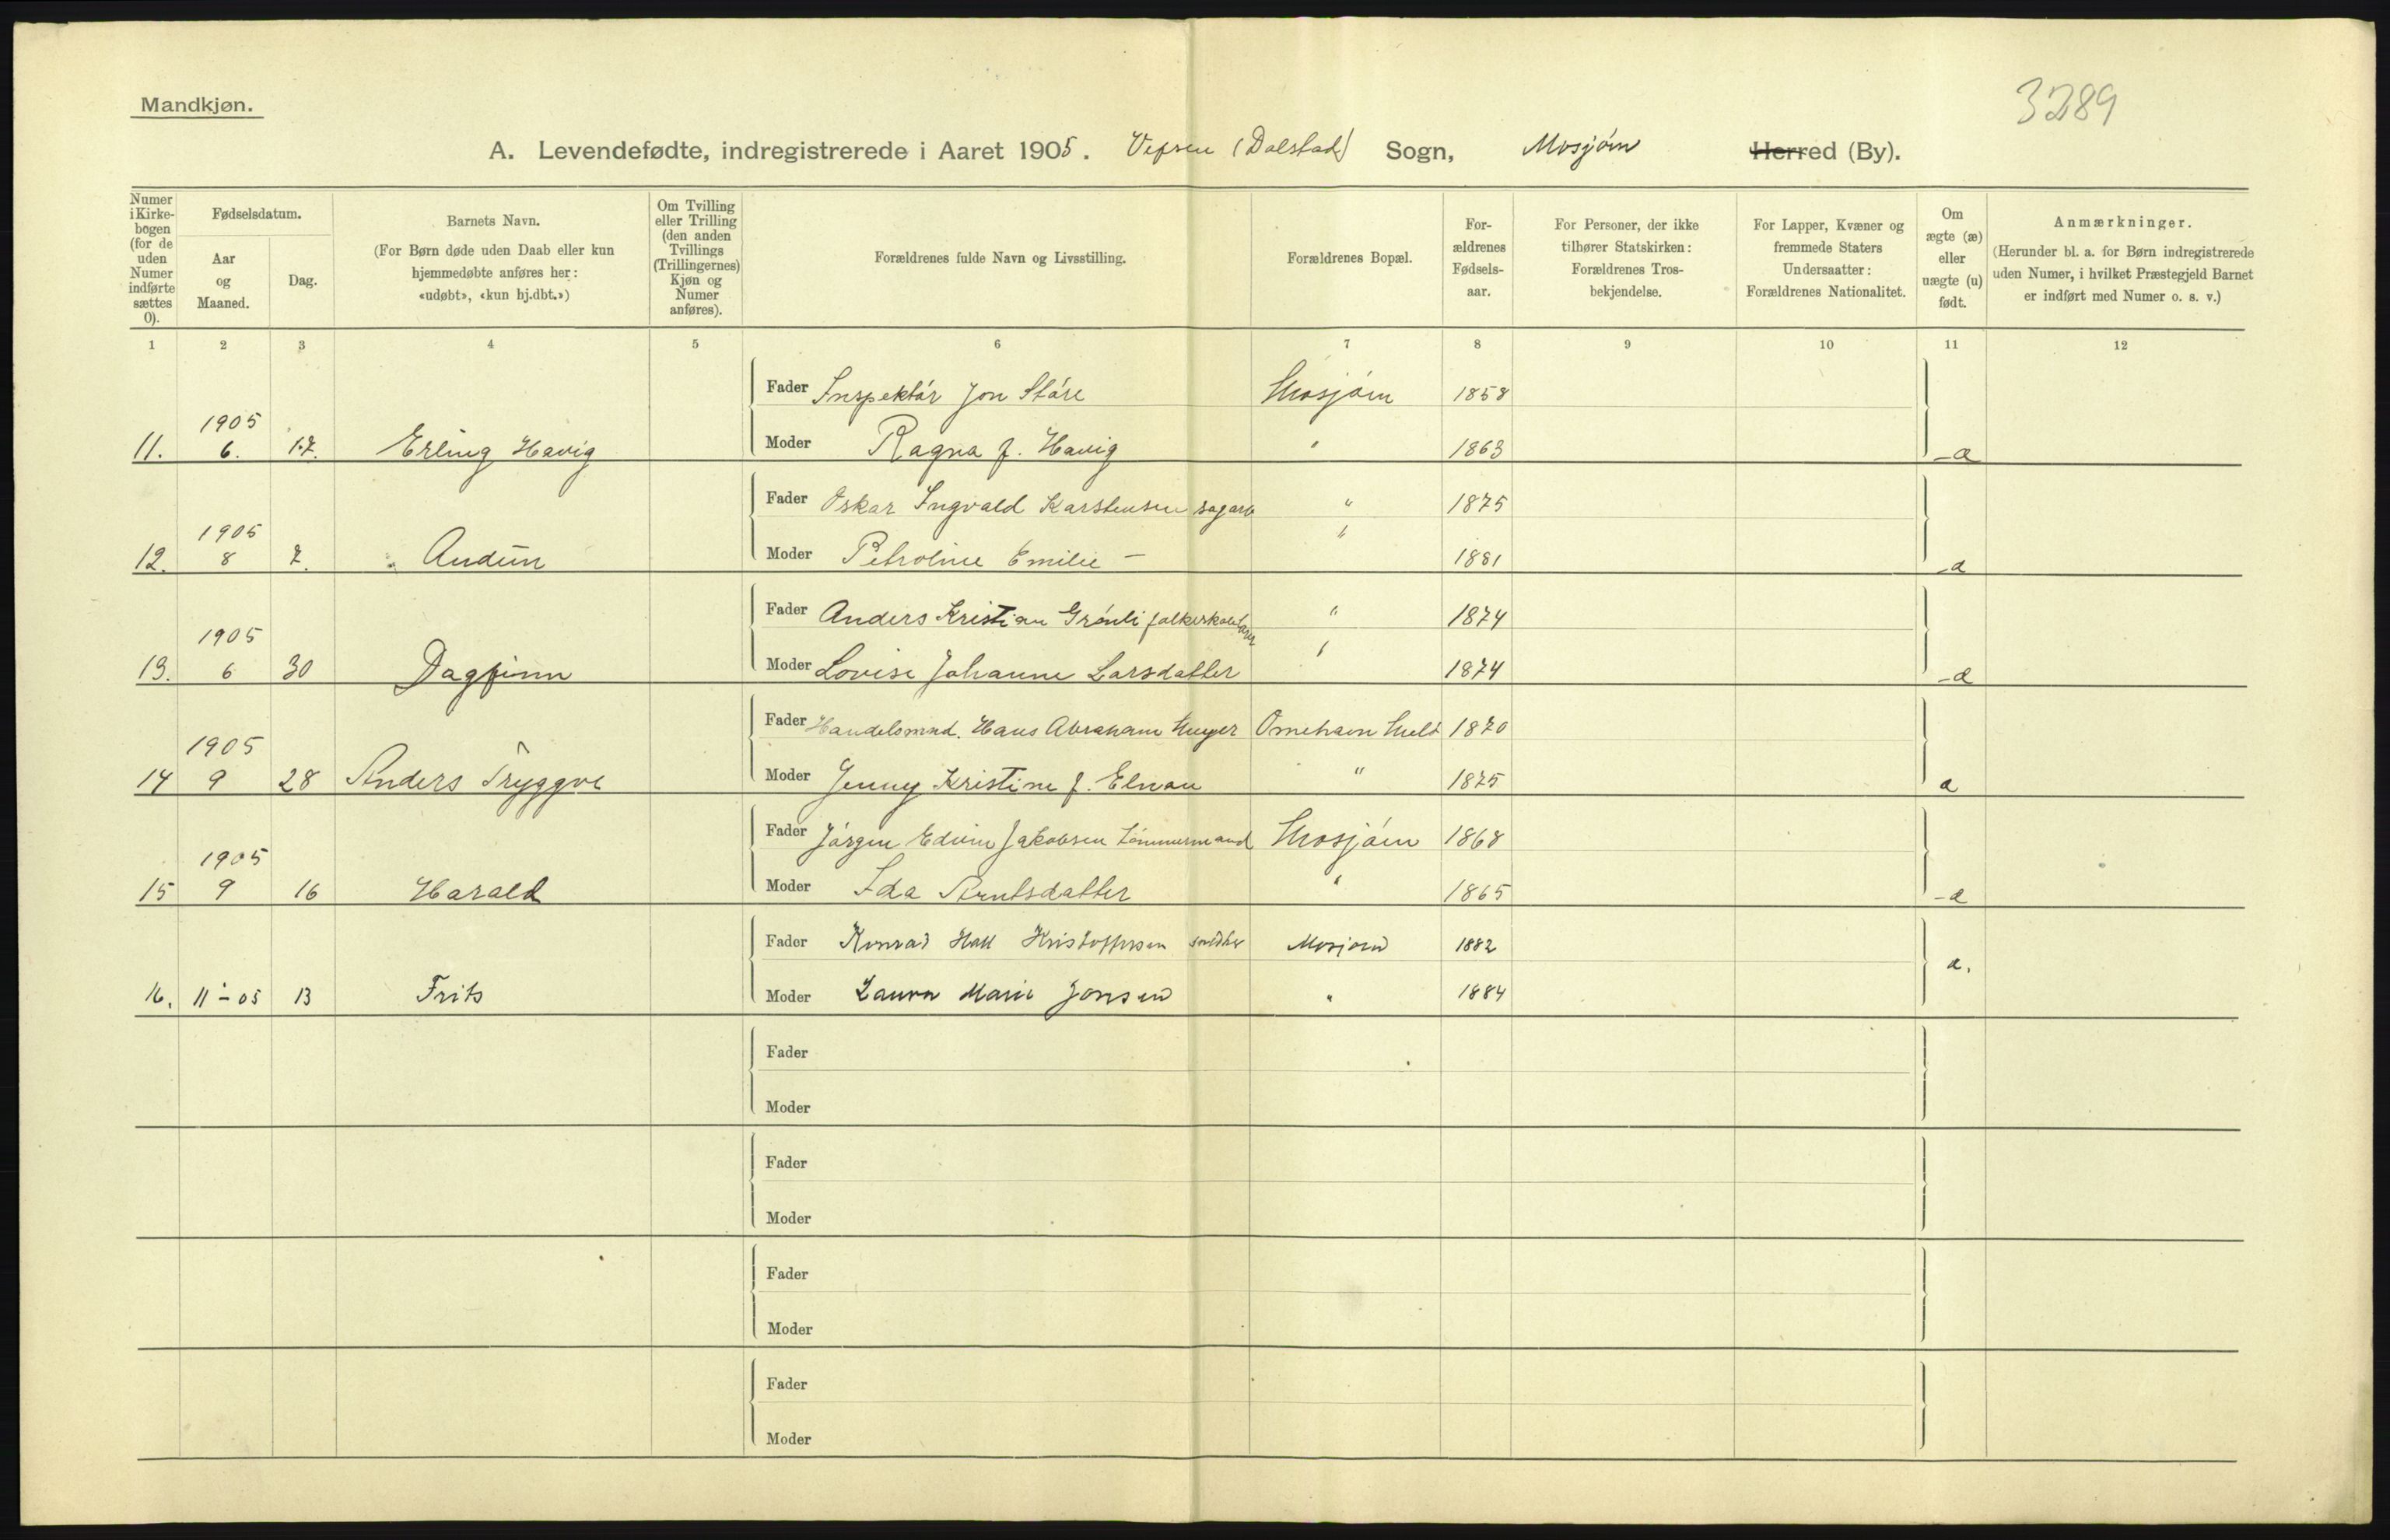 Mandkjøn.
3289
A. Levendefødte, indregistrerede i Aaret 1905. Vefsen (Dolstad) Sogn, Mosjøen Herred (By).
Numer i Kirke-bogen (for de uden Numer indførte sættes 0).
Fødselsdatum.
Aar og Maaned.
Dag.
Barnets Navn.
(For Børn døde uden Daab eller kun hjemmedøbte anføres her: «udøbt», «kun hj.dbt.»)
Om Tvilling eller Trilling (den anden Tvillings (Trillingernes) Kjøn og Numer anføres).
Forældrenes fulde Navn og Livsstilling.
Forældrenes Bopæl.
For-ældrenes Fødsels-aar.
For Personer, der ikke tilhører Statskirken: Forældrenes Tros-bekjendelse.
For Lapper, Kvæner og fremmede Staters Undersaatter: Forældrenes Nationalitet.
Om ægte (æ) eller uægte (u) født.
Anmærkninger.
(Herunder bl. a. for Børn indregistrerede uden Numer, i hvilket Præstegjeld Barnet er indført med Numer o. s. v.)
1 2 3 4 5 6 7 8 9 10 11 12
Fader Inspektør Jon Støre Mosjøen 1858
11. 1905 6. 17. Erling Havig Moder Ragna f. Havig " 1863 æ
Fader Oskar Ingvald Karstensen sagarb " 1875
12. 1905 8 7. Audun Moder Petroline Emilie — " 1881 æ
Fader Anders Kristian Grønli " 1874
13. 1905 6 30 Dagfinn Moder Lovise Johanne Larsdatter " 1874 æ
Fader Handelsmnd. Hans Abraham Meyer 1870
14 1905 9 28 Anders Tryggve Moder Jenny Kristine f. " 1875 æ
Fader Jørgen Edvin Jakobsen tømmermand Mosjøen 1868
15 1905 9 16 Harald Moder Ida Arntsdatter " 1865 æ
Fader Konrad Hall Kristoffersen Mosjøen 1882
16. 11 - 05 13 Frits Moder Laura Marie Jonsen " 1884 æ.
Fader
Moder
Fader
Moder
Fader
Moder
Fader
Moder